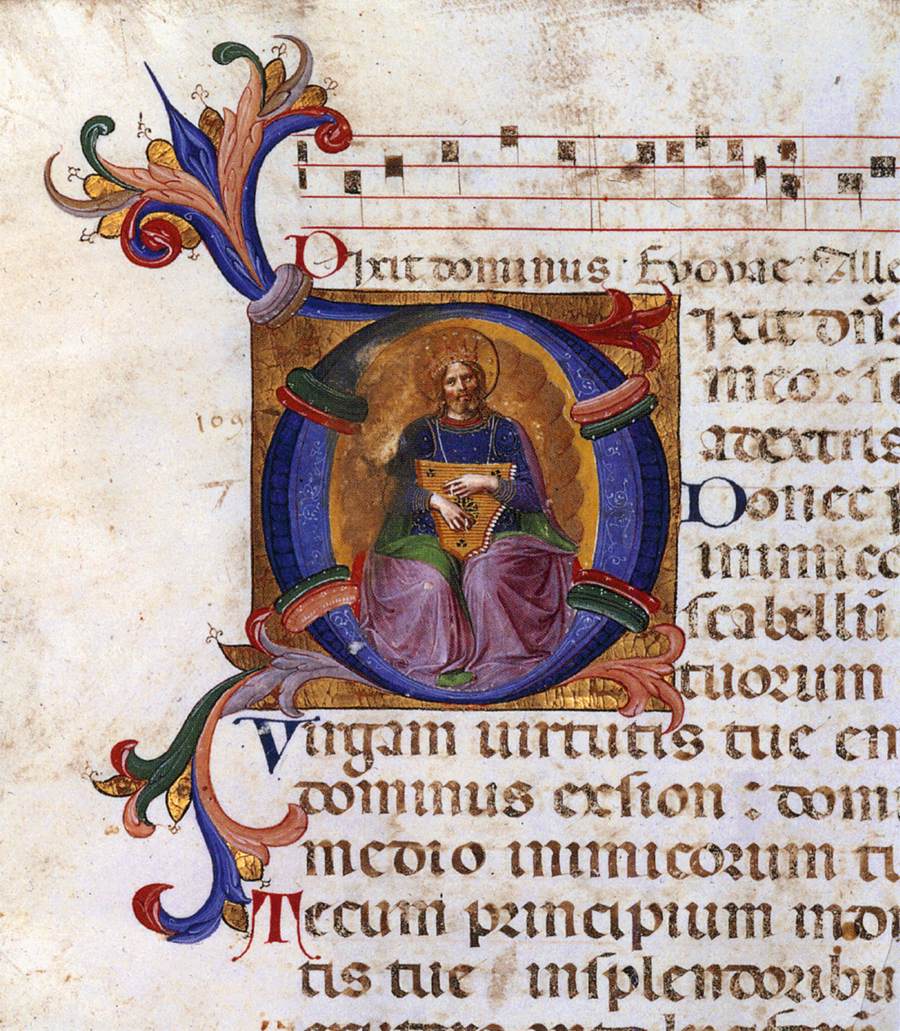 Dixit dominus: Evovae. Alle
Dixit dn̄s
meo: se
adextris
Donec p
inimico
scabellū
tuorum
Virgam uirtutis tue em
dominus exsion: domi
medio inimicorum tu
Tecum principium indi
tis tue insplendoribu